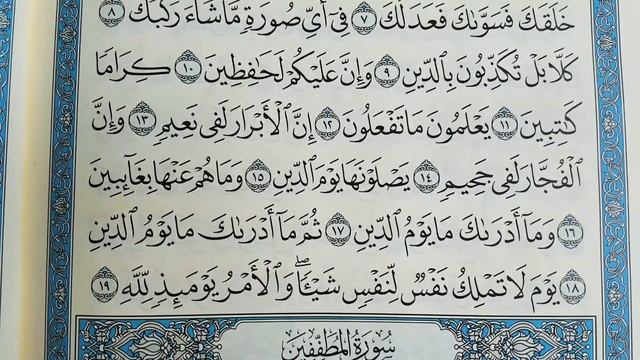 خَلَقَكَ فَسَوَّىٰكَ فَعَدَلَكَ ٧ فِىٓ أَىِّ صُورَةٍ مَّا شَآءَ رَكَّبَكَ ٨
كَلَّا بَلْ تُكَذِّبُونَ بِٱلدِّينِ ٩ وَإِنَّ عَلَيْكُمْ لَحَٰفِظِينَ ١٠ كِرَامًا
كَٰتِبِينَ ١١ يَعْلَمُونَ مَا تَفْعَلُونَ ١٢ إِنَّ ٱلْأَبْرَارَ لَفِى نَعِيمٍ ١٣ وَإِنَّ
ٱلْفُجَّارَ لَفِى جَحِيمٍ ١٤ يَصْلَوْنَهَا يَوْمَ ٱلدِّينِ ١٥ وَمَا هُمْ عَنْهَا بِغَآئِبِينَ
١٦ وَمَآ أَدْرَىٰكَ مَا يَوْمُ ٱلدِّينِ ١٧ ثُمَّ مَآ أَدْرَىٰكَ مَا يَوْمُ ٱلدِّينِ
١٨ يَوْمَ لَا تَمْلِكُ نَفْسٌ لِّنَفْسٍ شَيْـًٔا ۖ وَٱلْأَمْرُ يَوْمَئِذٍ لِّلَّهِ ١٩
سُورَةُ المُطَفِّفِينَ